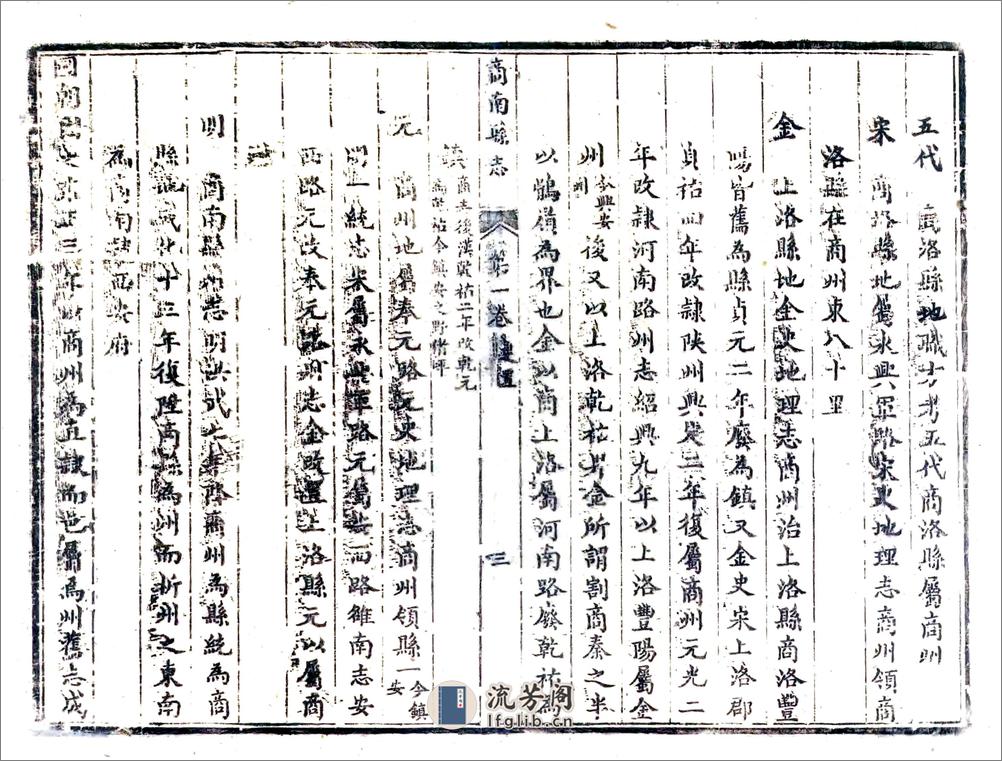 五代 商洛縣地職方考五代商洛縣屬商州
宋 商洛縣地屬永興軍路宋史地理志商州領商
洛縣在商州東八十里
金 上洛縣地金史地理志商州治上洛縣商洛豐
陽皆舊為縣貞元二年廢為鎮又金史宋上洛郡
貞祐四年改隸陝州興定二年復屬商州元光二
年改隸河南路州志紹興九年以上洛豐陽屬金
州今興安州後又以上洛乾祐畀金所謂割商秦之半
以鶻嶺為界也金以商上洛屬河南路廢乾祐為
鎮商志後漢乾祐二年改乾元為乾祐今鎮安之野猪坪
商南縣志
第一卷
三
元 商州地屬奉元路元史地理志商州領縣一今鎮安
明一統志宋屬永興軍路元屬安西路雒南志安
西路元改奉元路州志金改置上洛縣元以屬商
州
明 商南縣州志明洪武七年降商州為縣統為商
縣成化十三年復陞商縣為州而析州之東南
為商南隸西安府
國朝因之雍正三年以商州為直隸而邑屬為州舊志成
流芳閣
lfglib.cn